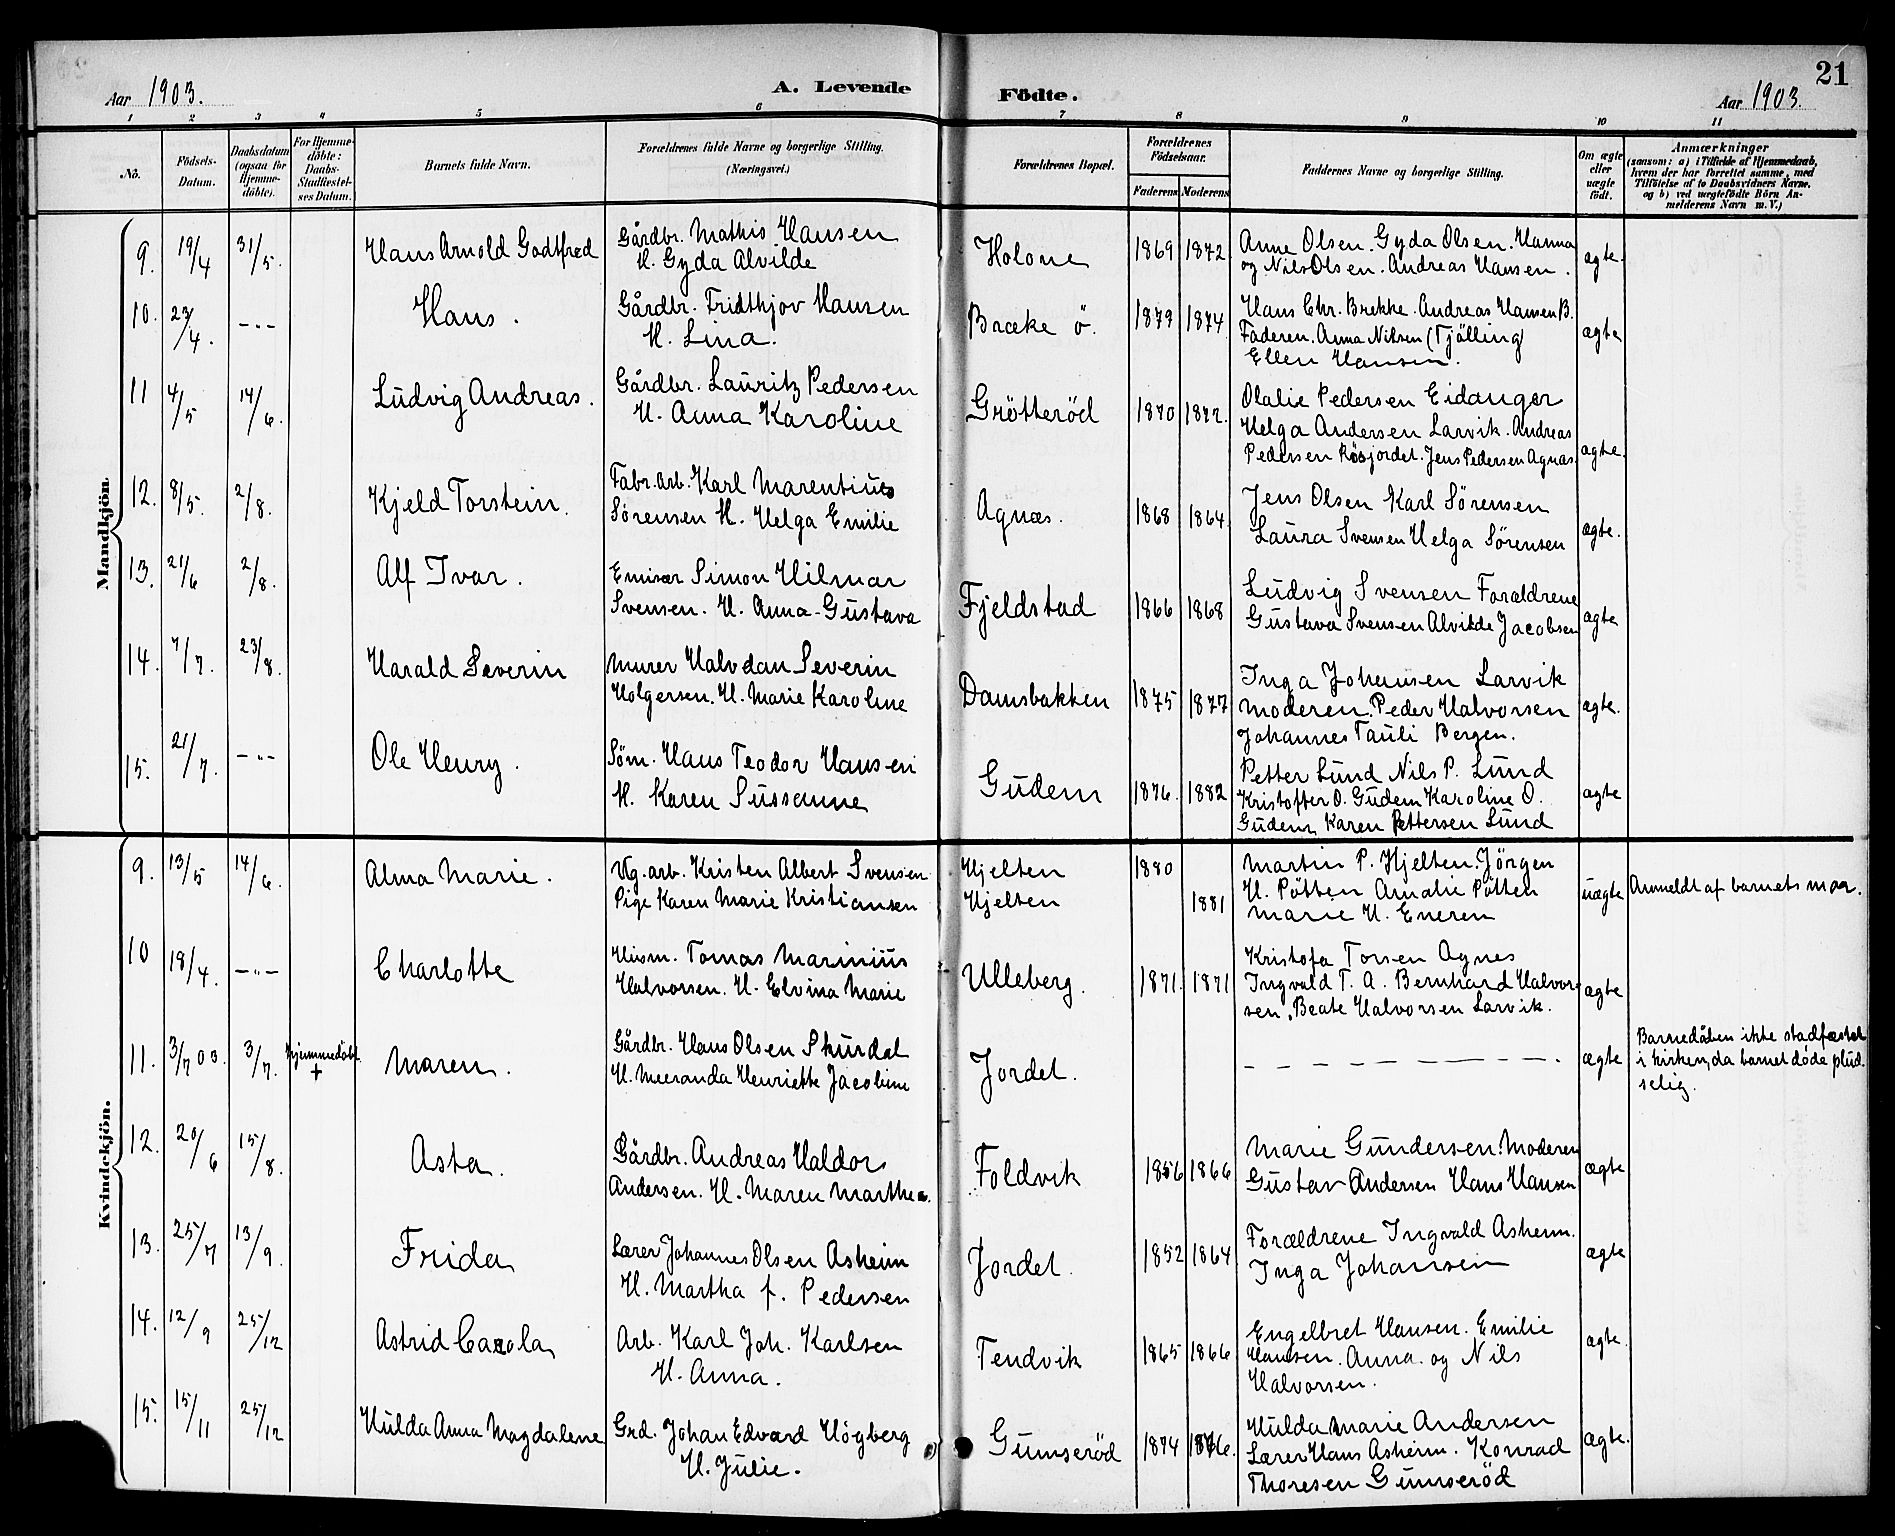 21
Aar 1903.
A. Levende Födte.
Aar 1903.
1 2 3 4 5 6 7 8 9 10 11
No.
Födsels-
Datum.
Daabsdatum
(ogsaa for
Hjemme-
döbte).
For Hjemme-
döbte:
Daabs-
Stadfæstel-
ses Datum.
Barnets fulde Navn.
Forældrenes fulde Navne og borgerlige Stilling.
(Næringsvei.)
Forældrenes Bopæl.
Forældrenes
Födselsaar.
Faderens Moderens
Faddernes Navne og borgerlige Stilling.
Om ægte
eller
uægte
født.
Anmærkninger
(saasom: a) i Tilfælde af Hjemmedaab,
hvem der har forrettet samme, med
Tilföielse af to Daabsvidners Navne,
og b) ved uægtefödte Börn An-
melderens Navn m. V.)
Mandkjön.
9. 19/4 31/5. Hans Arnold Godtfred Gårdbr. Mathis Hansen Holone 1869 1872 Anne Olsen. Gyda Olsen. Hanna ægte.
H. Gyda Alvilde og Nils Olsen. Andreas Hansen.
10. 23/4. -"- Hans. Gårdbr. Fridthjov Hansen Bræke ö. 1879 1874 Hans Chr. Brekke. Andreas Hansen B. ægte
H. Lina. Faderen. Anna Nilsen (Tjölling)
Ellen Hansen.
11 4/5 14/6. Ludvig Andreas. Gårdbr. Lauritz Pedersen Grötteröd 1870 1872. Olalie Pedersen Eidanger
H. Anna Karoline Helga Andersen Larvik. Andreas
Pedersen Rösjordet. Jens Pedersen Agnæs. ægte.
12. 8/5. 2/8. Kjeld Torstein. Fabr. arb. Karl Marentius Agnæs. 1868 1864. Jens Olsen Karl Sörensen ægte.
Sörensen H. Helga Emilie Laura Svensen Helga Sörensen
13. 21/6 2/8. Alf Ivar. Emisær Simon Hilmar Fjeldstad 1866 1868 Ludvig Svensen Forældrene ægte
Svensen. H. Anna-Gustava Gustava Svensen Alvilde Jacobsen
14. 7/7. 23/8. Harald Severin Murer Halvdan Severin Damsbakken 1875 1877 Inga Johansen Larvik ægte.
Holgersen. H. Marie Karoline Moderen. Peder Halvorsen
Johannes Tauli Bergen.
15. 21/7. -"- Ole Henry. Söm. Hans Teodor Hansen Gudem 1876. 1882 Petter Lund Nils P. Lund ægte
H. Karen Sussanne Kristoffer O. Gudem Karoline O.
Gudem, Karen Pettersen Lund
Kvindekjön.
9. 13/5 14/6. Alma Marie. Vg. arb. Kristen Albert Svensen Hjelten 1880 Martin P. Hjelten. Jörgen
Pige Karen Marie Kristiansen Hjelten 1881 H. Pötten Amalie Pötten uægte Anmeldt af barnets mor.
Marie H. Eneren
10 18/4. -"- Charlotte Husm. Tomas Marinius Ulleberg. 1871. 1871 Kristofa Torsen Agnes ægte
Halvorsen. H. Elvina Marie Ingvald T. A. Bernhard Halvor-
sen, Beate Halvorsen Larvik.
11. 3/7 03. 3/7. Hjemmedöbt + Maren. Gårdbr. Hans Olsen Skurdal Jordet. - - - - - - - ægte Barnedåben ikke stadfæstet
H. Meeranda Henriette Jacobine i kirken, da barnet döde plud-
selig.
12. 20/6 15/8. Asta. Gårdbr. Andreas Haldor Foldvik 1856 1866 Marie Gundersen. Moderen ægte
Andersen. H. Maren Marthea. Gustav Andersen Hans Hansen
13. 25/7 13/9. Frida Lærer Johannes Olsen Asheim Jordet. 1852 1864 Forældrene Ingvald Asheim. ægte
H. Martha f. Pedersen Inga Johansen
14. 12/9 25/12 Astrid Carola Arb. Karl Joh. Karlsen Tendvik 1865 1866 Engelbret Hansen. Emilie ægte.
H. Anna. Hansen. Anna. og Nils
Halvorsen.
15. 15/11 25/12 Hulda Anna Magdalene Grd. Johan Edvard Högberg Gumseröd 1874 1876. Hulda Marie Andersen ægte.
H. Julie. Lærer Hans Asheim. Konrad
Thoresen Gumseröd